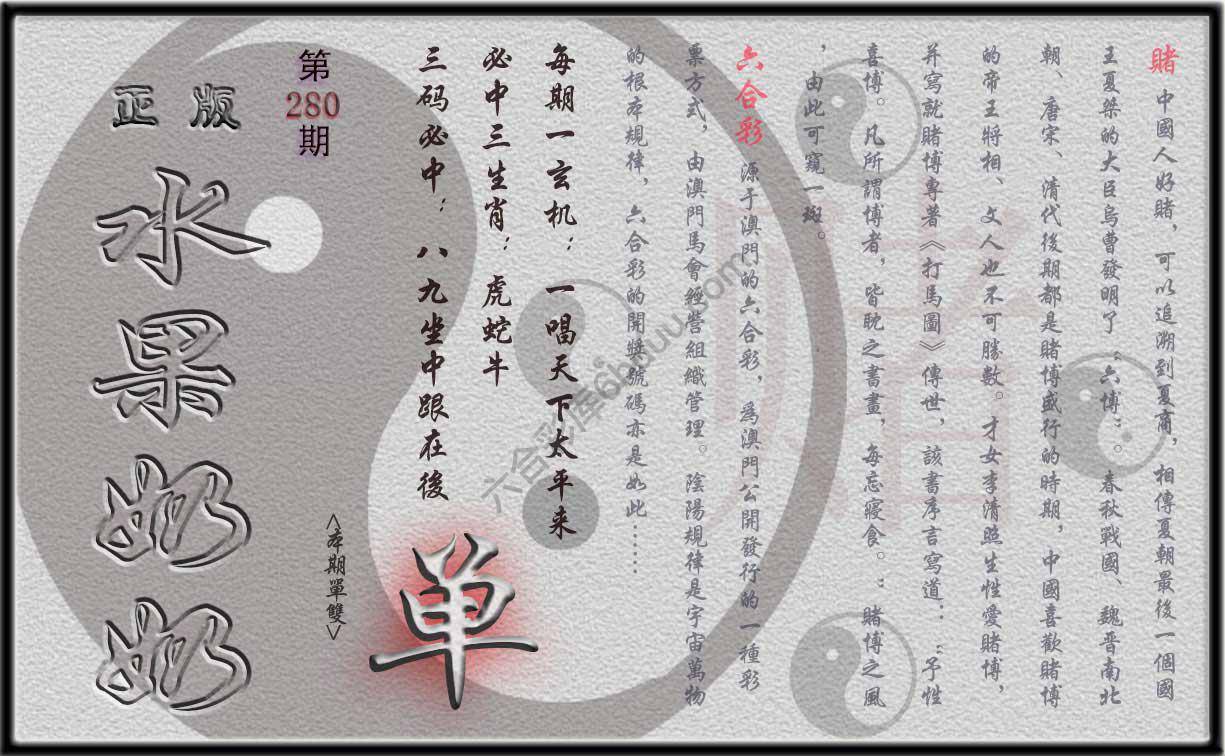 賭 中國人好賭，可以追溯到夏商，相傳夏朝最後一個國
王夏桀的大臣烏曹發明了“六博”。春秋戰國、魏晋南北
朝、唐宋、清代後期都是賭博盛行的時期，中國喜歡賭博
的帝王將相、文人也不可勝數。才女李清照生性愛賭博，
并寫就賭博專著《打馬圖》傳世，該書序言寫道：“予性
喜博。凡所謂博者，皆耽之晝書，每忘寢食。：賭博之風
，由此可窺一斑。
六合彩 源于澳門的六合彩，爲澳門公開發行的一種彩
票方式，由澳門馬會經營組織管理。陰陽規律是宇宙萬物
的根本規律，六合彩的開獎號碼亦是如此……
每期一玄机：一唱天下太平来
必中三生肖：虎蛇牛
三码必中：八九坐中跟在後
单
<本期單雙>
第
280
期
正版
水果奶奶
賭
六合彩库6hduu.com